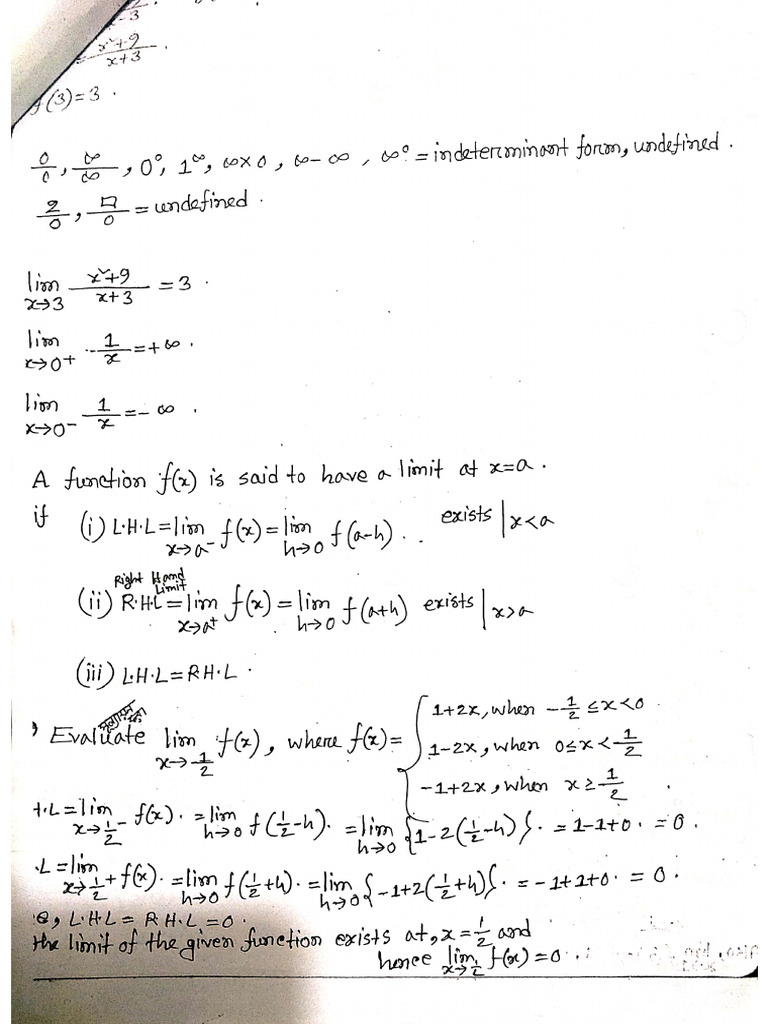 x-3
= x²+9/x+3 .
f(3)=3 .
0/0, ∞/∞, 0⁰, 1^∞, ∞×0, ∞-∞, ∞⁰ = indeterminant form, undefined.
2/0, □/0 = undefined.
lim x→3 x²+9/x+3 = 3 .
lim x→0+ 1/x = +∞ .
lim x→0- 1/x = -∞ .
A function f(x) is said to have a limit at x=a.
if (i) L.H.L = lim x→a- f(x) = lim h→0 f(a-h) .. exists | x<a
Right Hand Limit
(ii) R.H.L = lim x→a+ f(x) = lim h→0 f(a+h) exists | x>a
(iii) L.H.L = R.H.L .
, Evaluate lim x→1/2 f(x), where f(x) = { 1+2x, when -1/2 ≤ x < 0
1-2x, when 0 ≤ x < 1/2
-1+2x, when x ≥ 1/2 .
H.L = lim x→1/2- f(x) . = lim h→0 f(1/2-h) . = lim h→0 {1-2(1/2-h)} . = 1-1+0 . = 0 .
.L = lim x→1/2+ f(x) . = lim h→0 f(1/2+h) . = lim h→0 {-1+2(1/2+h)} . = -1+1+0 . = 0 .
e, L.H.L = R.H.L = 0 .
the limit of the given function exists at, x = 1/2 and
hence lim x→1/2 f(x) = 0 .